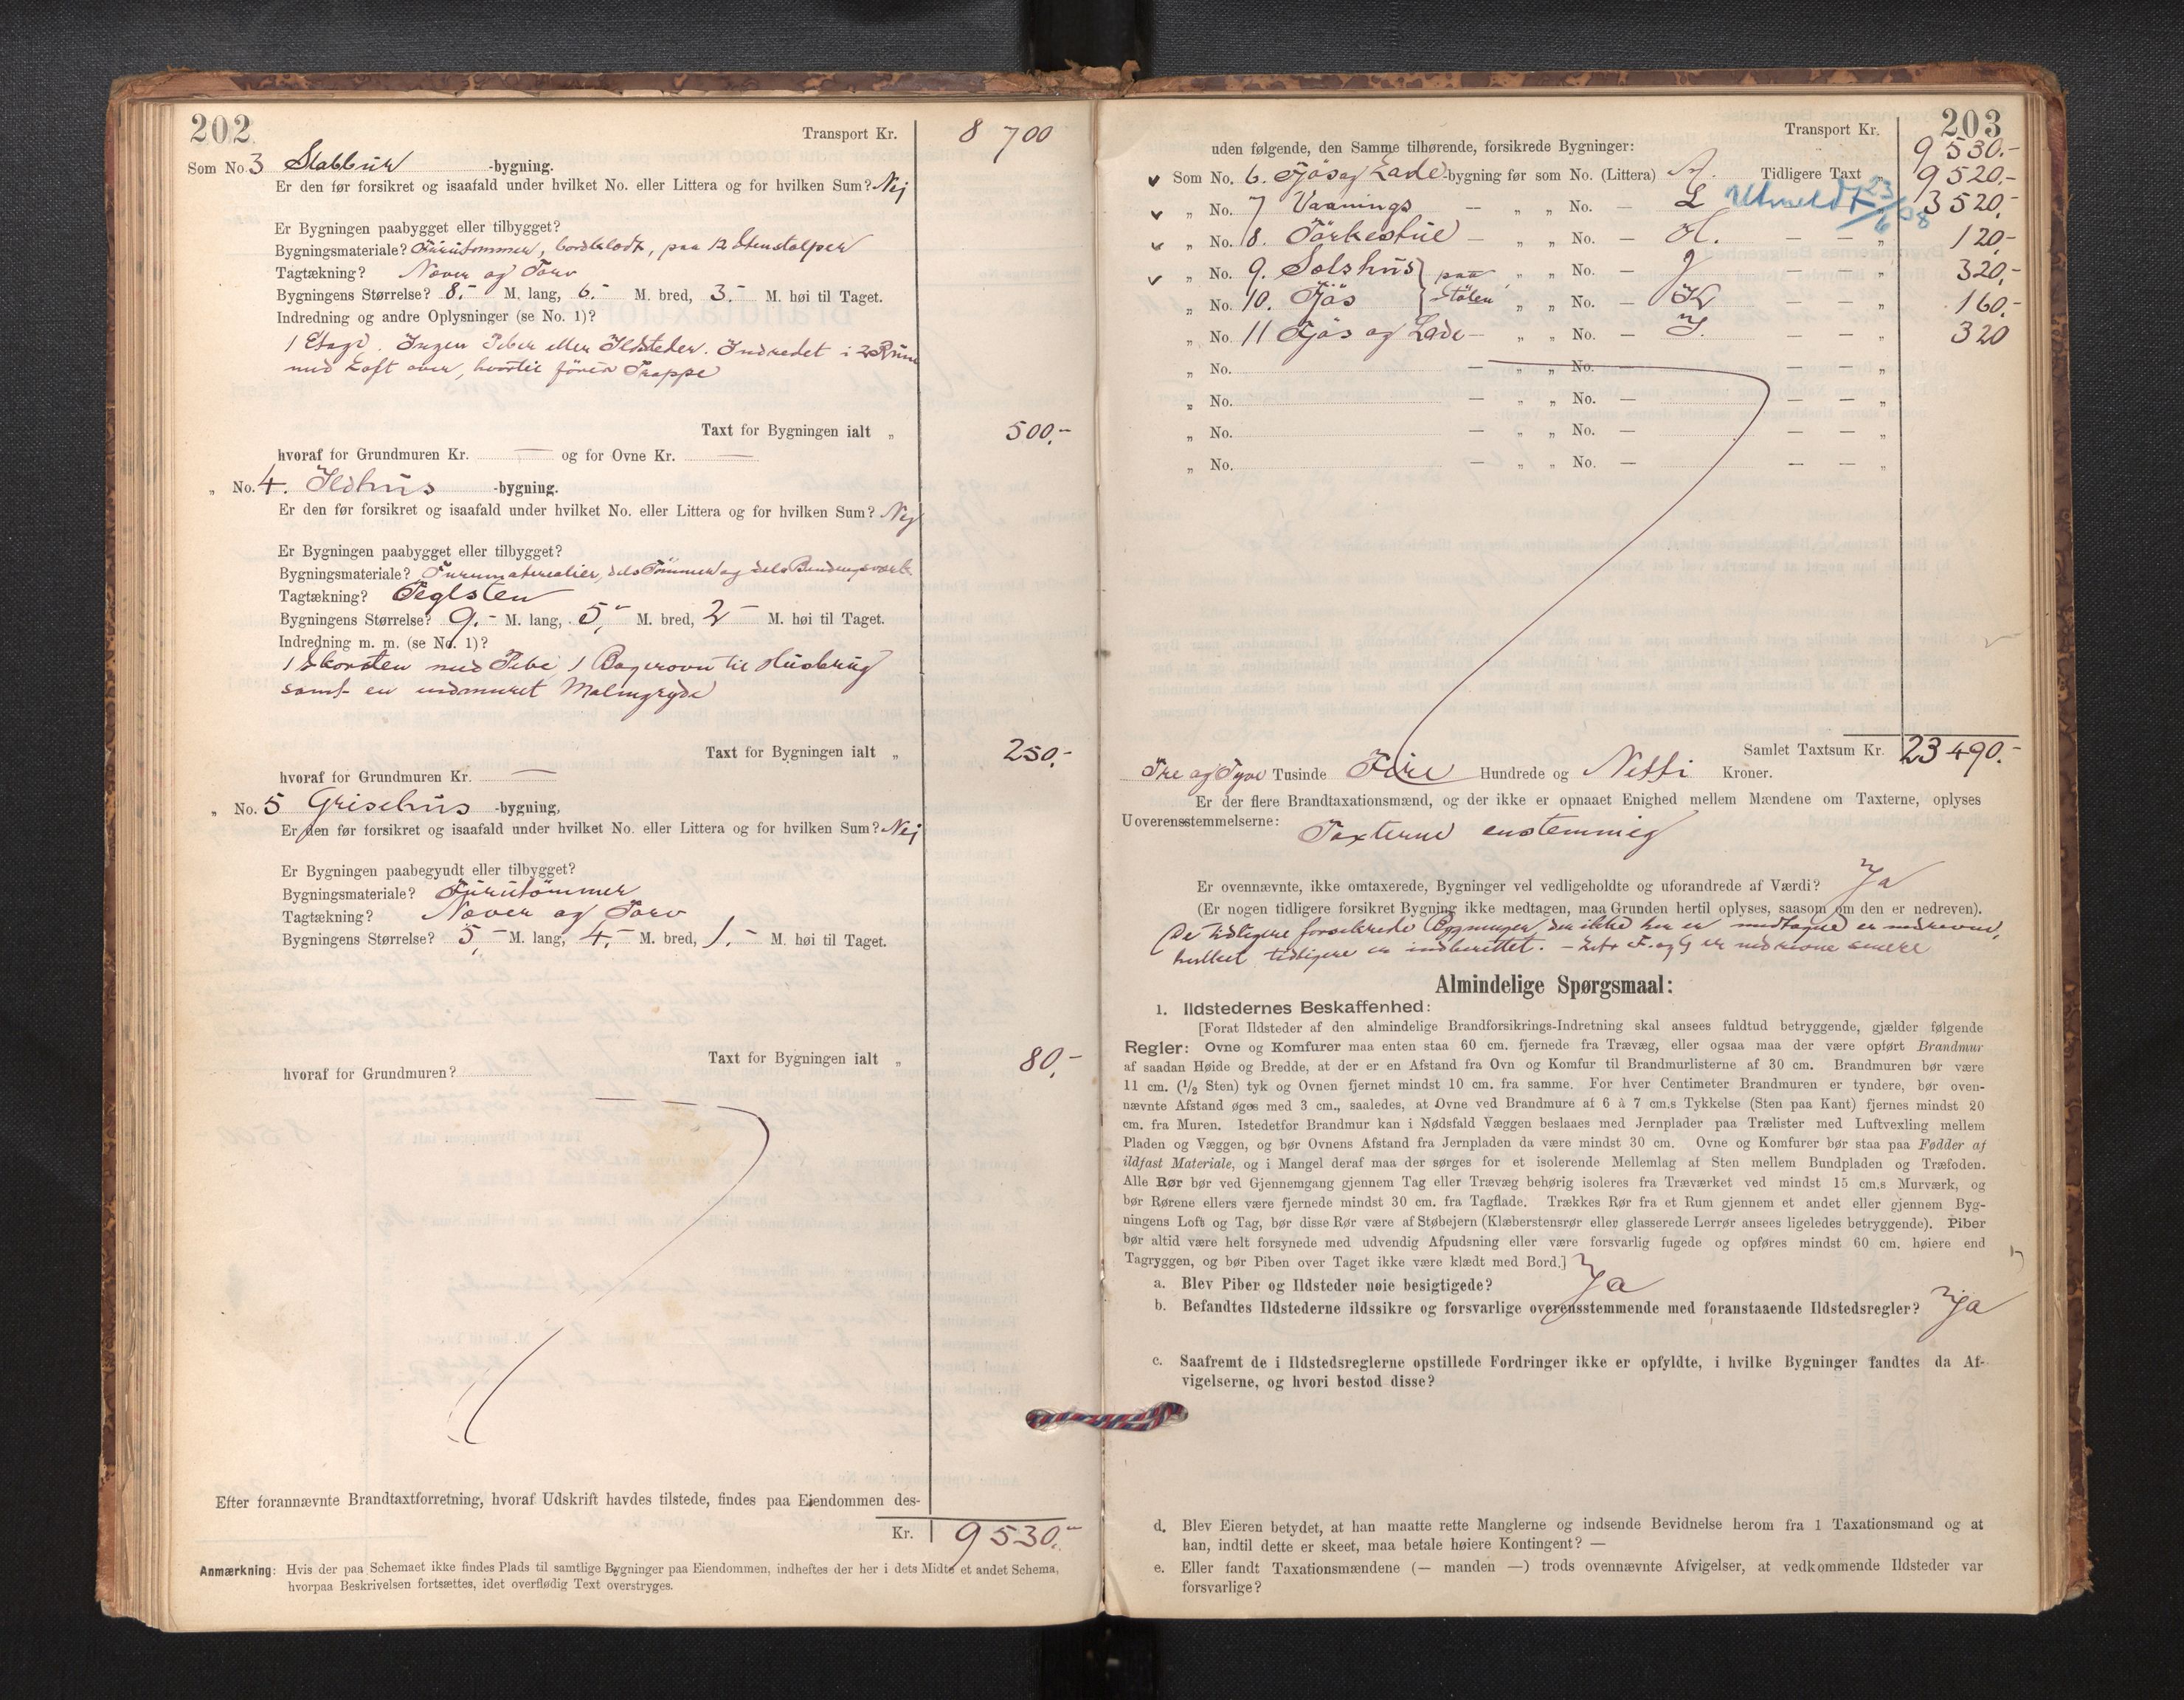 202
Transport Kr. 8 700
Som No. 3 Stabbur -bygning.
Er den før forsikret og isaafald under hvilket No. eller Littera og for hvilken Sum? Nej
Er Bygningen paabygget eller tilbygget?
Bygningsmateriale? Furutømmer, bordklædt, paa 12 Stenstolper
Tagtækning? Næver og Torv
Bygningens Størrelse? 8.- M. lang, 6.- M. bred, 3.- M. høi til Taget.
Indredning og andre Oplysninger (se No. 1)?
1 Etage. Ingen Piber eller Ildsteder. Indredet i 2 Rum
med Loft over, hvortil fører Trappe
Taxt for Bygningen ialt „ 500.-
hvoraf for Grundmuren Kr. — og for Ovne Kr. —
„ No. 4. Ildhus -bygning.
Er den før forsikret og isaafald under hvilket No. eller Littera og for hvilken Sum? Nej
Er Bygningen paabygget eller tilbygget?
Bygningsmateriale? Furumaterealier, dels Tømmer og dels Bindingsværk
Tagtækning? Teglsten
Bygningens Størrelse? 9.- M. lang, 5,- M. bred, 2- M. høi til Taget.
Indredning m. m. (se No. 1)?
1 Skorsten med Pibe 1 Bagerovn til Husbrug
samt en indmuret Malmgryde
Taxt for Bygningen ialt „ 250.-
hvoraf for Grundmuren Kr. —
„ No. 5 Grisehus -bygning,
Er den før forsikret og isaafald under hvilket No. eller Littera og for hvilken Sum? Nej
Er Bygningen paabegyndt eller tilbygget?
Bygningsmateriale? Furutømmer
Tagtækning? Næver og Torv
Bygningens Størrelse? 5,- M. lang, 4,- M. bred, 1.- M. høi til Taget.
Taxt for Bygningen ialt „ 80,-
hvoraf for Grundmuren?
Efter forannævnte Brandtaxtforretning, hvoraf Udskrift havdes tilstede, findes paa Eiendommen des-
Kr. 9 530.-
Anmærkning: Hvis der paa Schemaet ikke findes Plads til samtlige Bygninger paa Eiendommen, indheftes der her i dets Midte et andet Schema,
hvorpaa Beskrivelsen fortsættes, idet overflødig Text overstryges.
203
Transport Kr. 9 530.-
uden følgende, den Samme tilhørende, forsikrede Bygninger:
v Som No. 6. Fjøs og Lade -bygning før som No. (Littera) A. Tidligere Taxt „ 9 520,-
v „ No. 7 Vaanings — „ „ No. — L Utmeldt 23/6 08 3 520,-
v „ No. 8. Tørkestue — „ „ No. — H. — — „ 120,-
v „ No. 9. Selshus } paa „ „ No. — J — — „ 320,-
„ No. 10. Fjøs } Stølen „ „ No. — K — — „ 160.-
„ No. 11 Fjøs og Lade — „ „ No. — I. — — „ 320
„ No. — „ „ No. — — — „
„ No. — „ „ No. — — — „
„ No. — „ „ No. — — — „
„ No. — „ „ No. — — — „
Samlet Taxtsum Kr. 23 490.-
Tre og Tyve Tusinde Fire Hundrede og Nitti Kroner.
Er der flere Brandtaxationsmænd, og der ikke er opnaaet Enighed mellem Mændene om Taxterne, oplyses
Uoverensstemmelserne: Taxterne enstemmig
Er ovennævnte, ikke omtaxerede, Bygninger vel vedligeholdte og uforandrede af Værdi? Ja
(Er nogen tidligere forsikret Bygning ikke medtagen, maa Grunden hertil oplyses, saasom om den er nedreven).
De tidligere forsikrede Bygninger, der ikke her er medtagne er nedrevne,
hvilket tidligere er indberettet. – Litr F. og G er nedrevne senere
Almindelige Spørgsmaal:
1. Ildstedernes Beskaffenhed:
[Forat Ildsteder af den almindelige Brandforsikrings-Indretning skal ansees fuldtud betryggende, gjælder følgende
Regler: Ovne og Komfurer maa enten staa 60 cm. fjernede fra Trævæg, eller ogsaa maa der være opført Brandmur
af saadan Høide og Bredde, at der er en Afstand fra Ovn og Komfur til Brandmurlisterne af 30 cm. Brandmuren bør være
11 cm. (1/2 Sten) tyk og Ovnen fjernet mindst 10 cm. fra samme. For hver Centimeter Brandmuren er tyndere, bør oven-
nævnte Afstand øges med 3 cm., saaledes, at Ovne ved Brandmure af 6 à 7 cm.s Tykkelse (Sten paa Kant) fjernes mindst 20
cm. fra Muren. Istedetfor Brandmur kan i Nødsfald Væggen beslaaes med Jernplader paa Trælister med Luftvexling mellem
Pladen og Væggen, og bør Ovnens Afstand fra Jernpladen da være mindst 30 cm. Ovne og Komfurer bør staa paa Fødder af
ildfast Materiale, og i Mangel deraf maa der sørges for et isolerende Mellemlag af Sten mellem Bundpladen og Træfoden.
Alle Rør bør ved Gjennemgang gjennem Tag eller Trævæg behørig isoleres fra Træværket ved mindst 15 cm.s Murværk, og
bør Rørene ellers være fjernede mindst 30 cm. fra Tagflade. Trækkes Rør fra et Rum gjennem et andet eller gjennem Byg-
ningens Loft og Tag, bør disse Rør være af Støbejern (Klæberstensrør eller glasserede Lerrør ansees ligeledes betryggende). Piber
bør altid være helt forsynede med udvendig Afpudsning eller være forsvarlig fugede og opføres mindst 60 cm. høiere end
Tagryggen, og bør Piben over Taget ikke være klædt med Bord.]
a. Blev Piber og Ildsteder nøie besigtigede? Ja
b. Befandtes Ildstederne ildssikre og forsvarlige overensstemmende med foranstaaende Ildstedsregler? Ja
c. Saafremt de i Ildstedsreglerne opstillede Fordringer ikke er opfyldte, i hvilke Bygninger fandtes da Af-
vigelserne, og hvori bestod disse?
d. Blev Eieren betydet, at han maatte rette Manglerne og indsende Bevidnelse herom fra 1 Taxationsmand og at
han, indtil dette er skeet, maa betale høiere Kontingent? —
e. Eller fandt Taxationsmændene (— manden —) trods ovennævnte Afvigelser, at vedkommende Ildsteder var
forsvarlige?